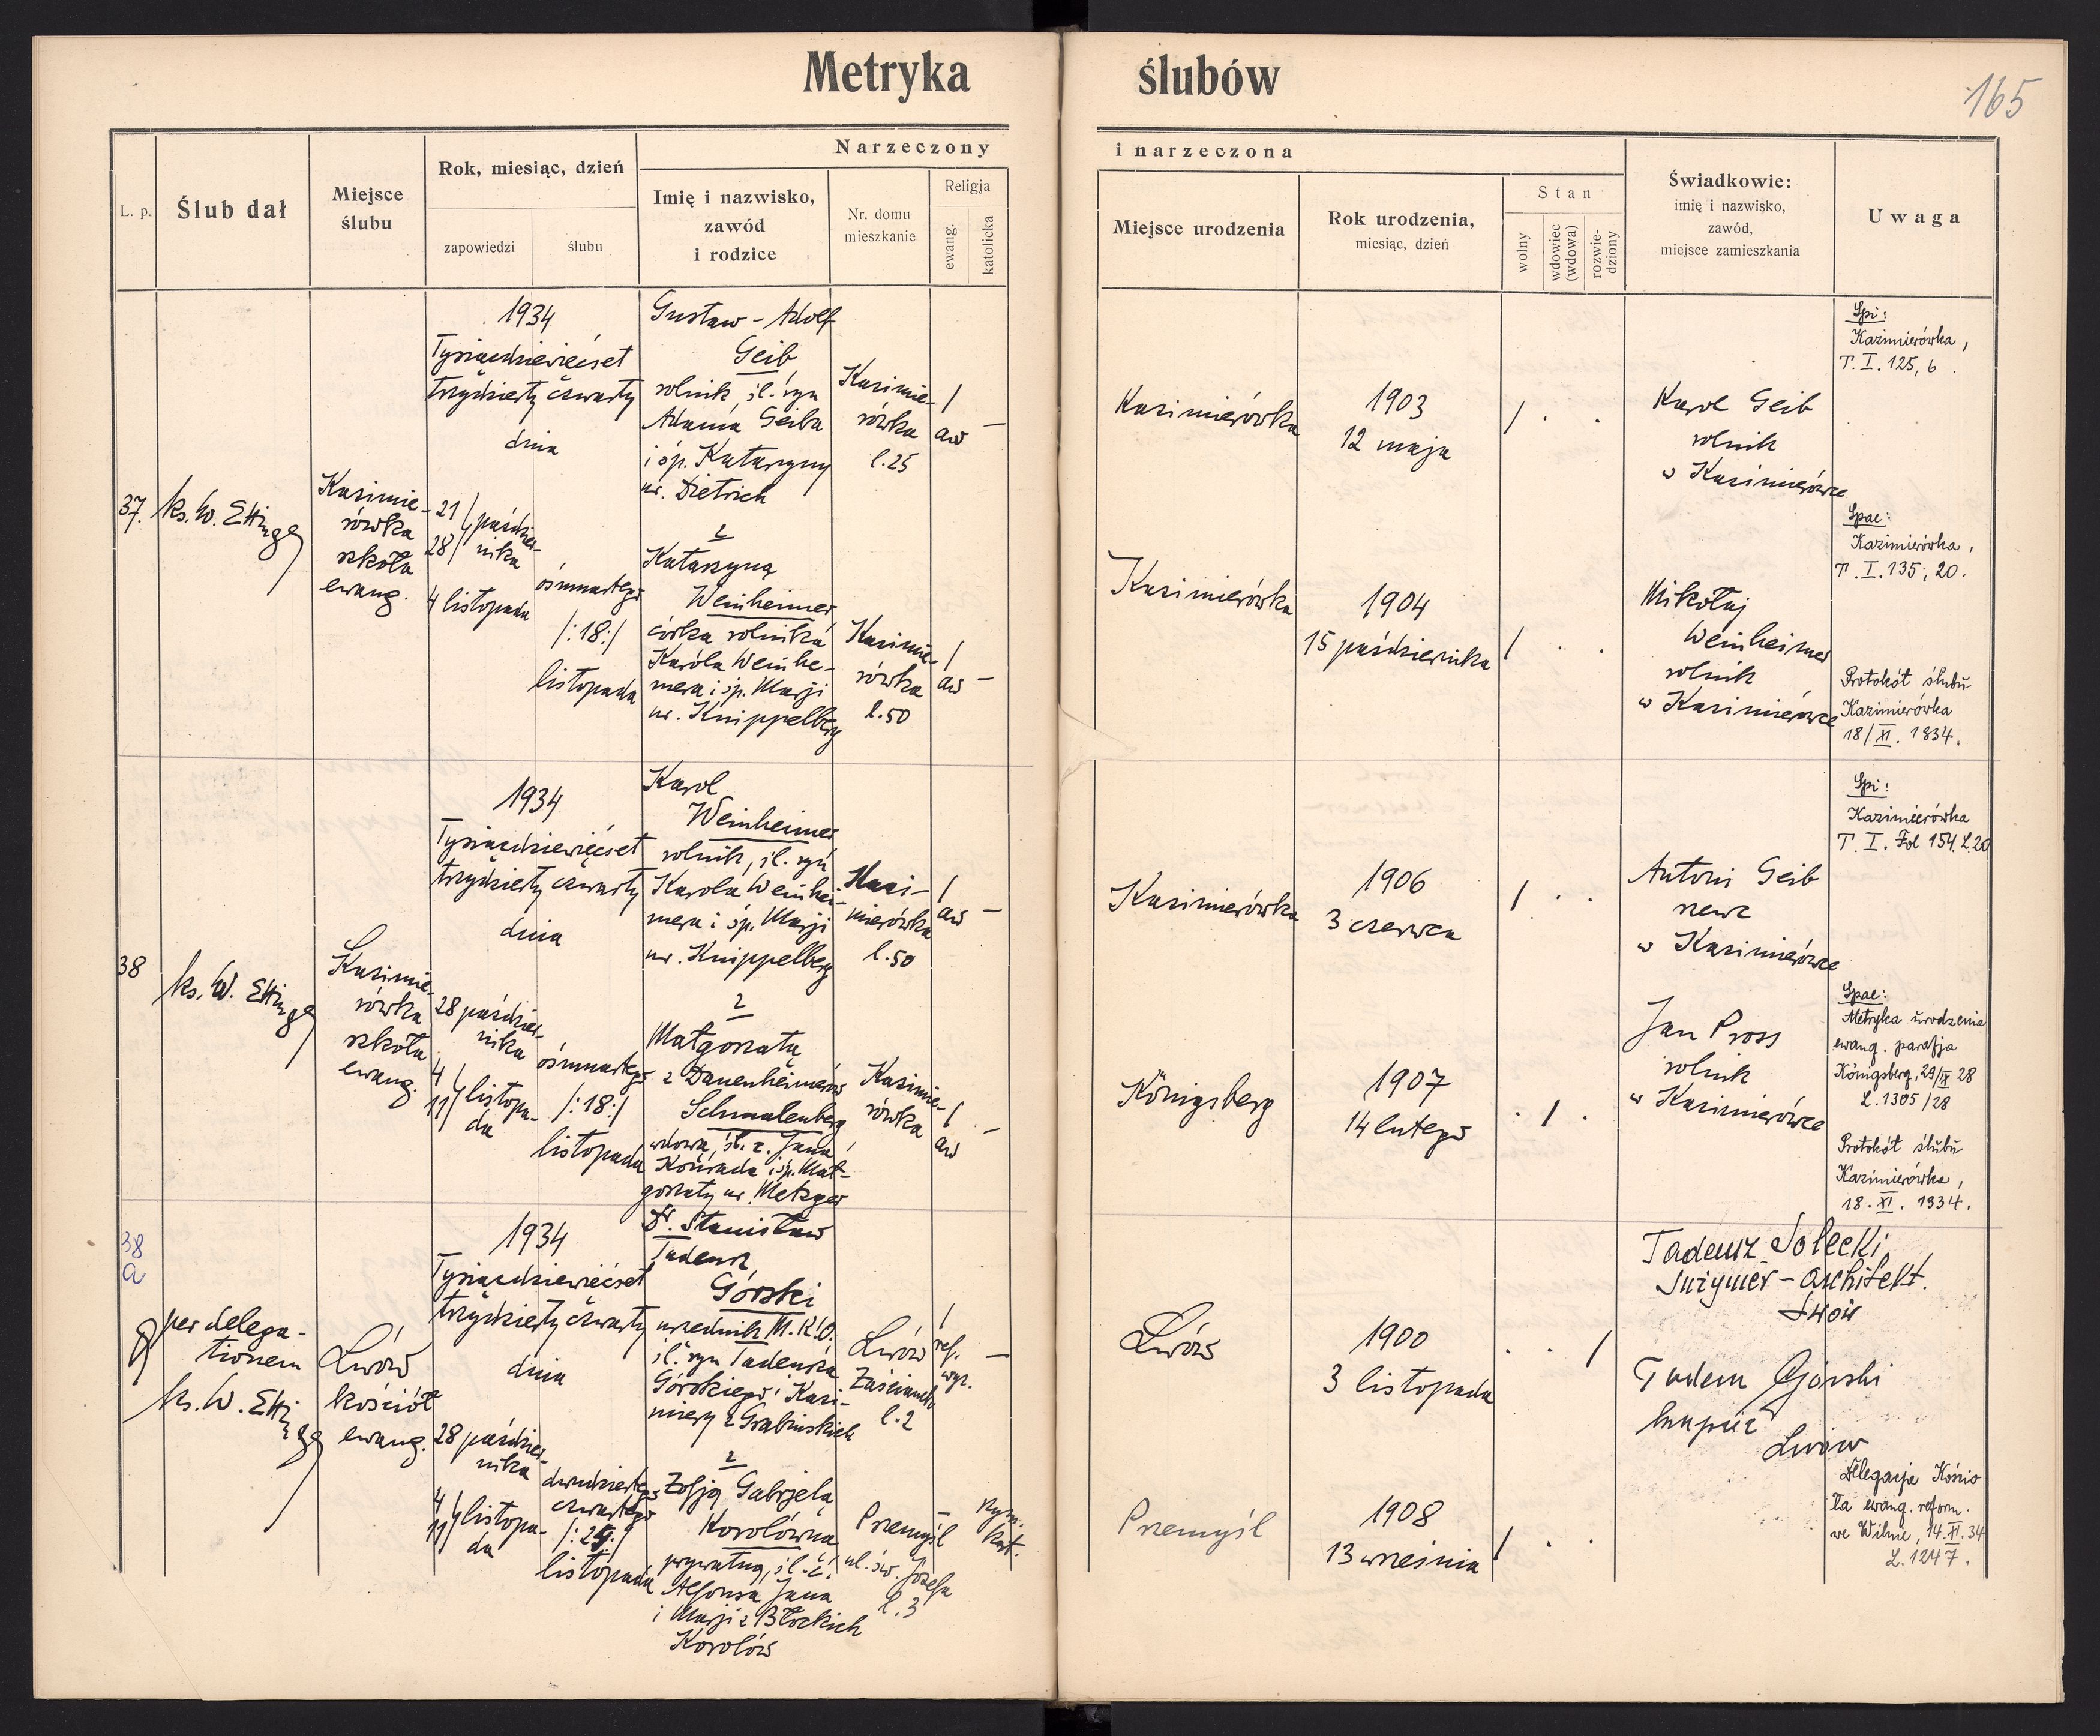 Metryka ślubów
165
L. p.
Ślub dał
Miejsce
ślubu
Rok, miesiąc, dzień
zapowiedzi
ślubu
Narzeczony
Imię i nazwisko,
zawód
i rodzice
Nr. domu
mieszkanie
Religja
ewang.
katolicka
i narzeczona
Miejsce urodzenia
Rok urodzenia,
miesiąc, dzień
Stan
wolny
wdowiec
(wdowa)
rozwie-
dziony
Świadkowie:
imię i nazwisko,
zawód,
miejsce zamieszkania
Uwaga
37.
ks. W. Ettinger
Kazimie-
rówka
szkoła
ewang.
1934
Tysiącdziewięćset
trzydziesty czwarty
dnia
21
28
paździer-
nika
4 listopada
ośmnastego
/:18:/
listopada
Gustaw - Adolf
Geib
rolnik, śl. syn
Adama Geiba
i śp. Katarzyny
ur. Dietrich
z
Katarzyną
Weinheimer
córka rolnika
Karola Weinhei-
mera i śp. Marji
ur. Knippelberg
Kazimie-
rówka
l. 25
/
aw
—
Kazimie-
rówka
l. 50
/
aw
—
Kazimierówka
1903
12 maja
/ . .
Kazimierówka
1904
15 października
/ . .
Karol Geib
rolnik
w Kazimierówce
Mikołaj
Weinheimer
rolnik
w Kazimierówce
Spi:
Kazimierówka,
T. I. 125, 6.
Spae:
Kazimierówka,
T. I. 135, 20.
Protokół ślubu
Kazimierówka
18/XI. 1934.
38
ks. W. Ettinger
Kazimie-
rówka
szkoła
ewang.
1934
Tysiącdziewięćset
trzydziesty czwarty
dnia
28 paździer-
nika
4
11
listopa-
da
ośmnastego
/:18:/
listopada
Karol
Weinheimer
rolnik, śl. syn
Karola Weinhei-
mera i śp. Marji
ur. Knippelberg
z
Małgorzatą
z Danenheimerów
Schmalenberg
wdowa, śl. c. Jana
Konrada i śp. Mał-
gorzaty ur. Metzger
Kazi-
mierówka
l. 50
/
aw
—
Kazimie-
rówka
/
aw
—
Kazimierówka
1906
3 czerwca
/ . .
Königsberg
1907
14 lutego
. / .
Antoni Geib
szewc
w Kazimierówce
Jan Pross
rolnik
w Kazimierówce
Spi:
Kazimierówka
T. I. Fol 154. L. 20
Spae:
Metryka urodzenia
ewang. parafja
Königsberg, 29/IX 28
L. 1305/28
Protokół ślubu
Kazimierówka,
18. XI. 1934.
38
a
per delega-
tionem
ks. W. Ettinger
Lwów
kościół
ewang.
1934
Tysiącdziewięćset
trzydziesty czwarty
dnia
28 paździer-
nika
4
11
listopa-
da
dwudziestego
czwartego
/:24:/
listopada
Dr. Stanisław
Tadeusz
Górski
urzędnik M.K.O.
śl. syn Tadeusza
Górskiego i Kazi-
miery z Grabińskich
z
Zofją Gabrjelą
Korolówna
prywatną, śl. c.
Alfonsa Jana
i Marji z Błockich
Korolów
Lwów
Zaścianek
l. 2
/
ref.
wyz.
—
Przemyśl
ul. św. Józefa
l. 3
—
rzym.
kat.
Lwów
1900
3 listopada
. . /
Przemyśl
1908
13 września
/ . .
Tadeusz Solecki
Inżynier - architekt.
Lwów
Tadeusz Górski
kupiec
Lwów
Delegacja Kościo
ła ewang. reform.
we Wilnie, 14.XI.34
L. 1247.